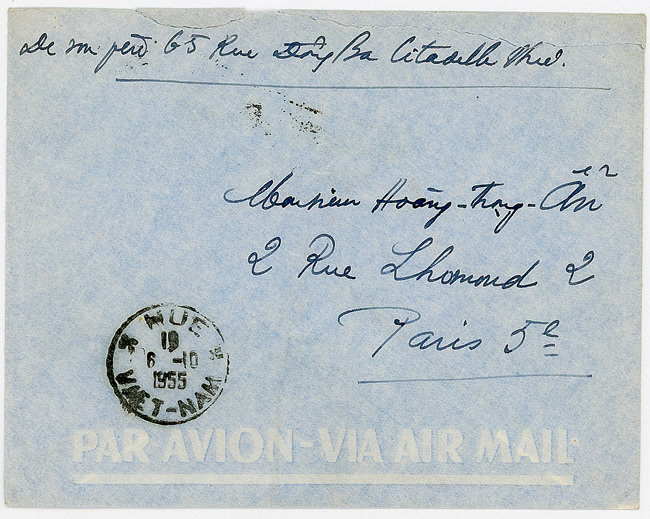 De son père 65 Rue Đông Ba Citadelle Hué.
Monsieur Hoàng-Trọng-Ẩn
2 Rue Lhomond 2
Paris 5e
HUE
10
6-10
1955
VIET-NAM
PAR AVION-VIA AIR MAIL